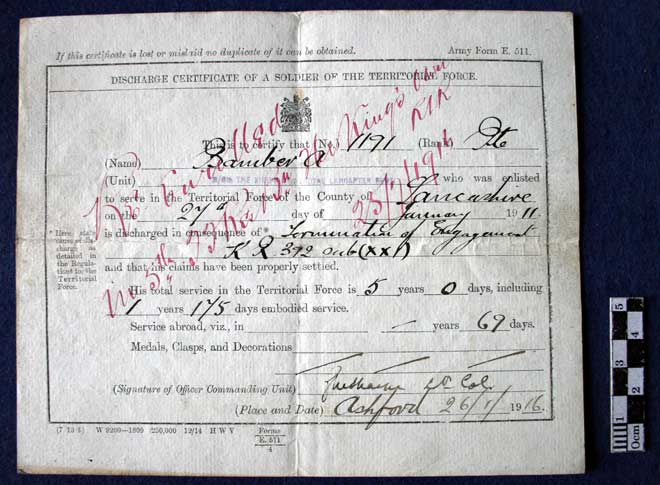 If this certificate is lost or mislaid no duplicate of it can be obtained. Army Form E. 511.
DISCHARGE CERTIFICATE OF A SOLDIER OF THE TERRITORIAL FORCE.
This is to certify that (No. 1191 (Rank) Pte
(Name) Bamber A
(Unit) who was enlisted
to serve in the Territorial Force of the County of Lancashire
on the 27th day of January 1911.
is discharged in consequence of * Termination of Engagement
K R 392 sub (xxi)
and that his claims have been properly settled.
* Here state
cause of dis-
charge as
detailed in
the Regula-
tions for the
Territorial
Force.
His total service in the Territorial Force is 5 years 0 days, including
1 years 175 days embodied service.
Service abroad, viz., in — years 69 days.
Medals, Clasps, and Decorations
(Signature of Officer Commanding Unit) Lt Col
(Place and Date) Ashford 26/1/1916.
(7 13 8) W 9200—1809 250,000 12/14 H W V Forms
E. 511
4
Re Enrolled
in 5th Bn The King's Own
RLR
0cm 1 2 3 4 5